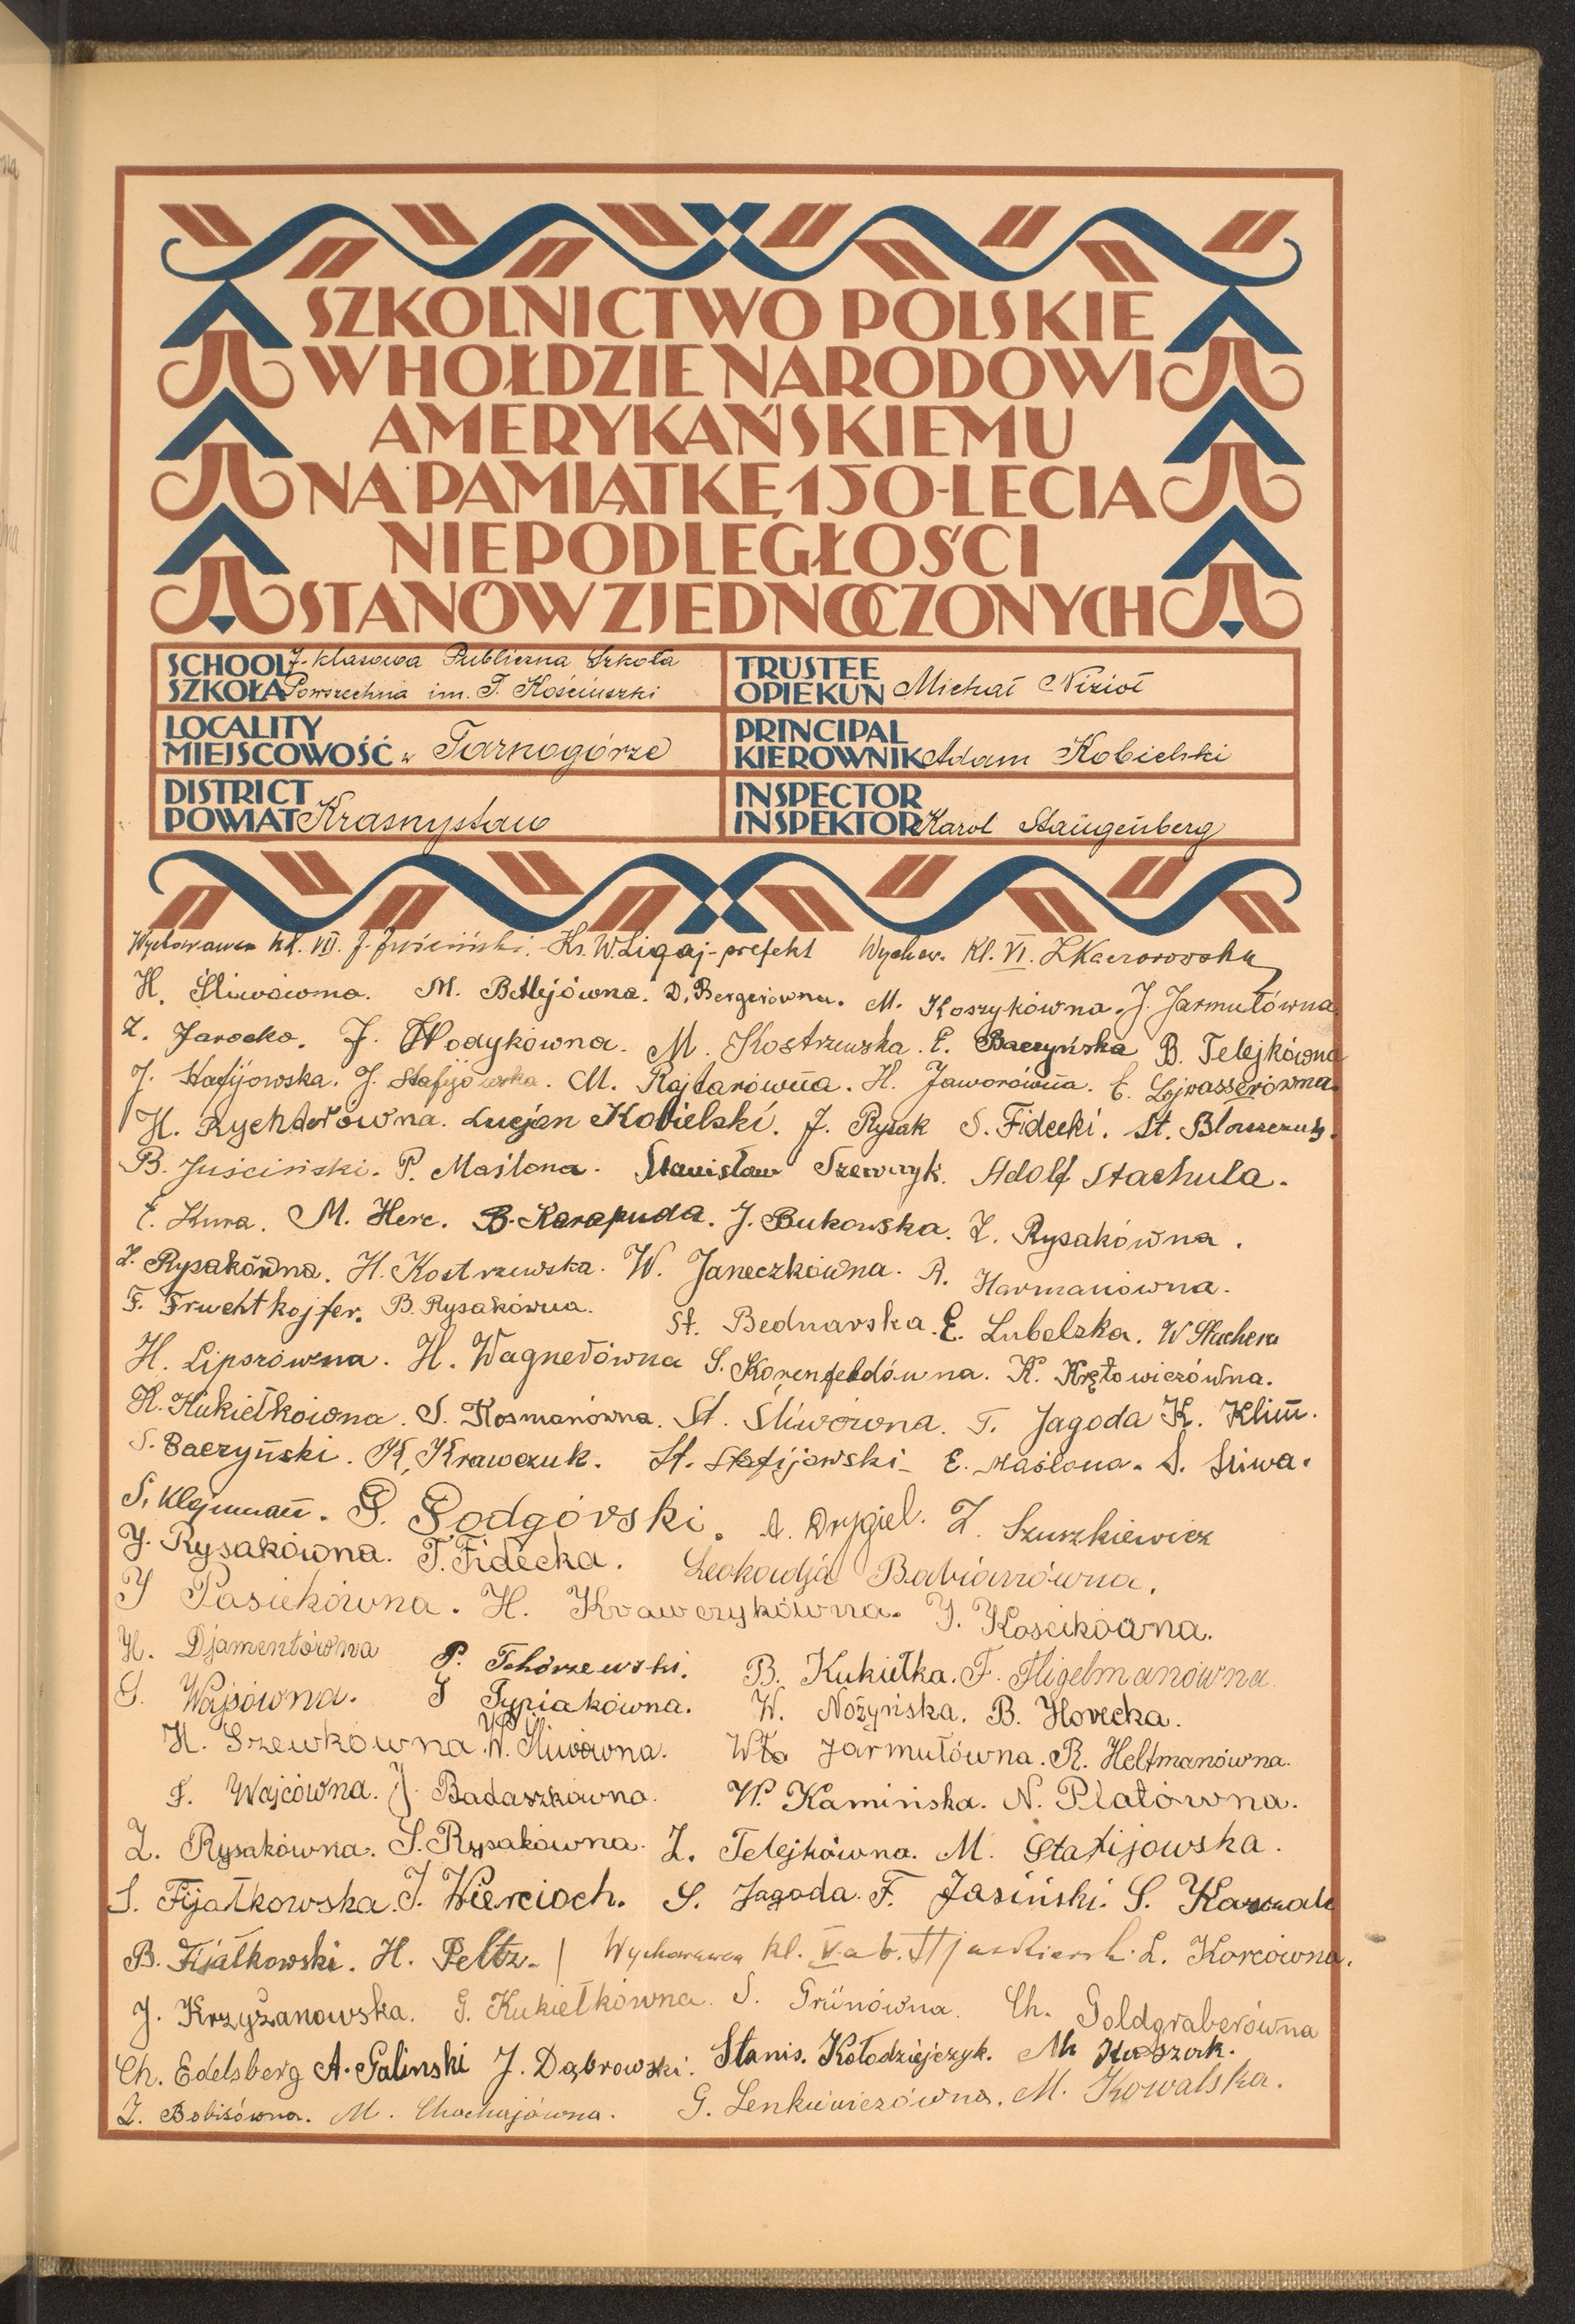 SZKOLNICTWO POLSKIE
W HOŁDZIE NARODOWI
AMERYKAŃSKIEMU
NA PAMIĄTKĘ 150-LECIA
NIEPODLEGŁOŚCI
STANÓW ZJEDNOCZONYCH
SCHOOL 7-klasowa Publiczna Szkoła
SZKOŁA Powszechna im. T. Kościuszki
TRUSTEE
OPIEKUN Michał Nizioł
LOCALITY
MIEJSCOWOŚĆ w Tarnogórze
PRINCIPAL
KIEROWNIK Adam Kobielski
DISTRICT
POWIAT Krasnystaw
INSPECTOR
INSPEKTOR Karol
Wychowawca kl. VII. J. Juściński. Ks. W. Ligaj - prefekt Wychow. Kl. VI. Z Kaczorowska
H. Śliwówna. M. Betlejówna. D. Bergerówna. M. Koszykówna. J. Jarmułówna.
Z. Jarocka. J. Włodykówna. M. Kostrzewska. E. Baczyńska B. Telejkówna
J. Stafijowska. J. Stafijowska. M. Rajtarówna. H. Jaworówna. E. Lojwasserówna.
H. Rychterówna. Lucjan Kobielski. J. Rysak S. Fidecki. St. Błaszczuk.
B. Juściński. P. Maślona. Stanisław Szewczyk. Adolf Stachula.
E. Kura. M. Herc. B. Karapuda. J. Bukowska. Z. Rysakówna.
Z. Rysakówna. H. Kostrzewska. W. Janeczkówna. R. Harmanówna.
F. Fruchtkojfer. B. Rysakówna. St. Bednarska. E. Lubelska. W Stachera
H. Liporówna. H. Wagnerówna S. Korenfeldówna. K. Krętowiczówna.
H. Kukiełkówna. S. Kosmanówna. St. Śliwówna. T. Jagoda K. Klim.
S. Baczyński. K. Krawczuk. St. Stafijowski E. Maślona. S. Śliwa.
S. Klejnman. P. Podgórski. A. Drygiel. Z. Szuszkiewicz
J. Rysakówna. T. Fidecka. Leokadja Babiarzówna.
J Pasiekówna. H. Krawczykówna. J. Kościkówna.
H. Djamentówna P. Tchórzewski. B. Kukiełka. F. Fligelmanówna.
S. Wajsówna. J Typiakówna. W. Nożyńska. B. Horecka.
H. Szewkówna. W. Śliwówna. Wła Jarmułówna. R. Heltmanówna.
F. Wajcówna. J. Badaszkówna. W. Kamińska. N. Platówna.
Z. Rysakówna. S. Rysakówna. Z. Telejkówna. M. Stafijowska.
S. Fijałkowska. J. Wiercioch. S. Jagoda. F. Jasiński. S. Kawzale
B. Fijałkowski. H. Peltz. Wychowawca kl. V a b. L. Korcówna.
J. Krzyżanowska. G. Kukiełkówna. S. Grünówna. Ch. Goldgraberówna
Ch. Edelsberg A. Galinski J. Dąbrowski. Stanis. Kołodziejczyk. M. Kuszak.
Z. Bobisówna. M. Chachajówna. G. Lenkiewiczówna. M. Kowalska.